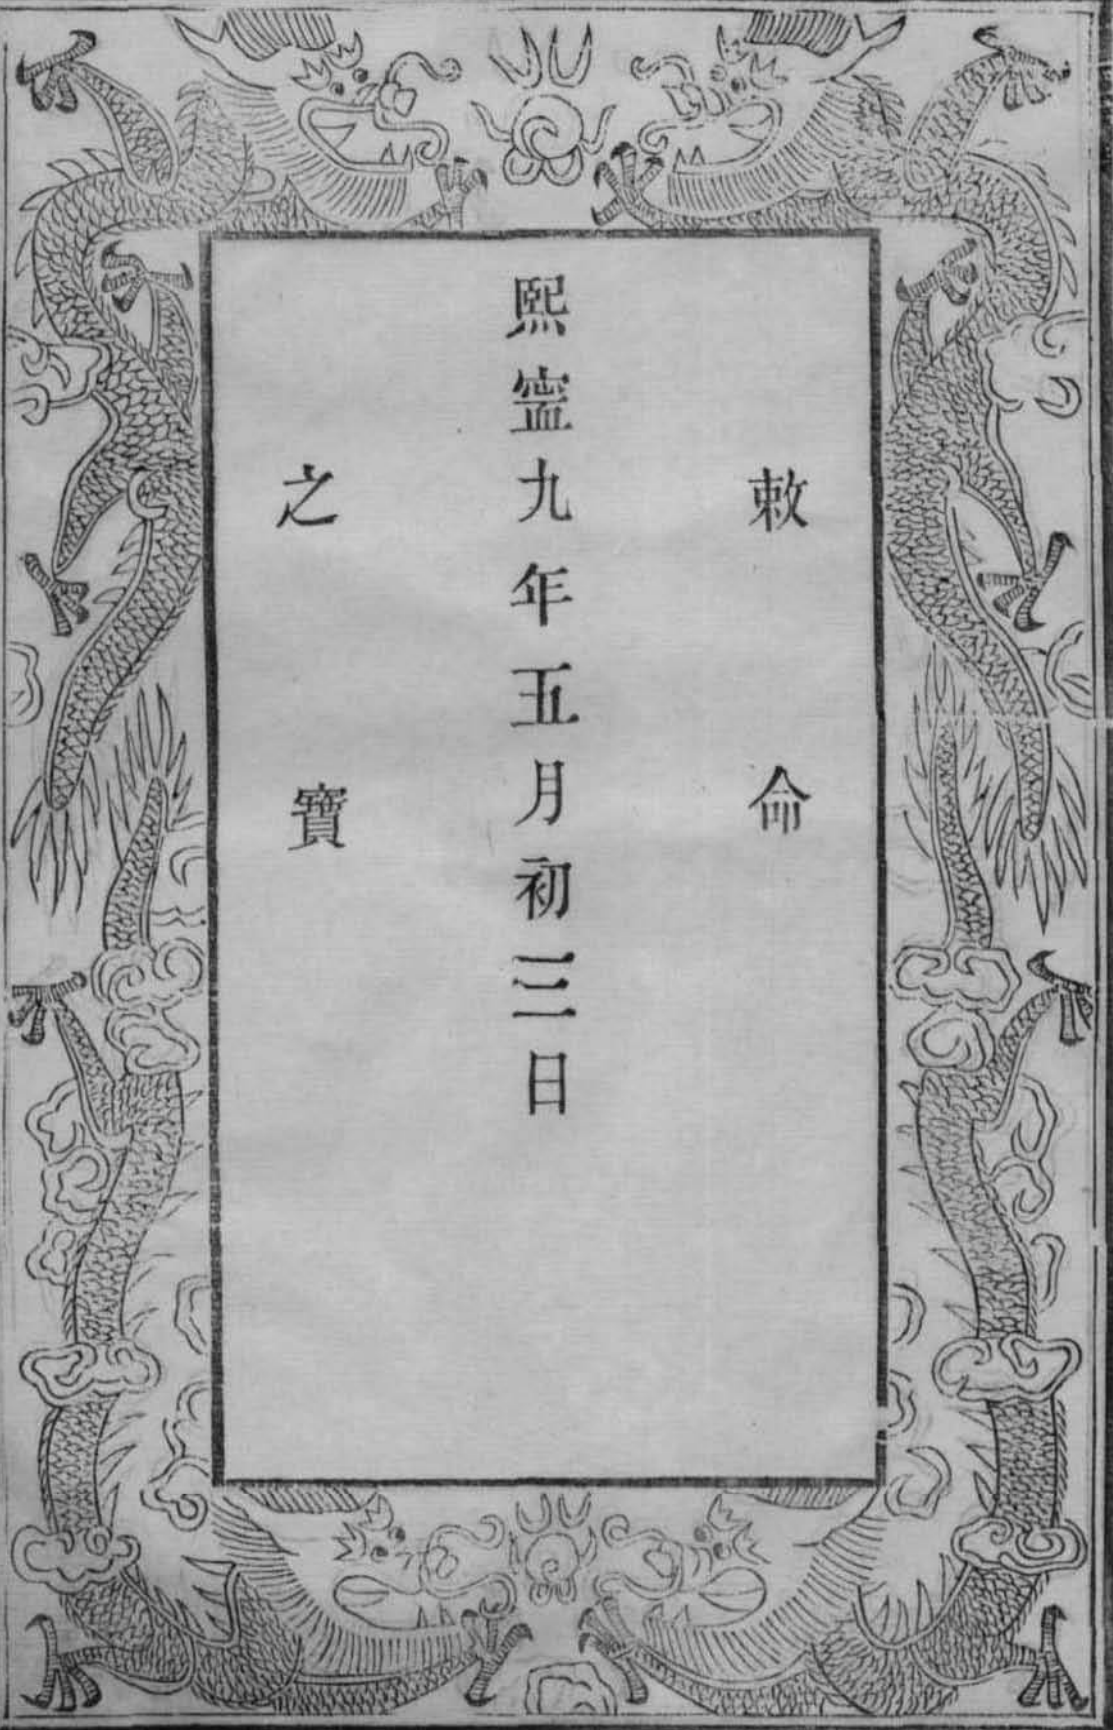 敕命
熙寍九年五月初三日
之寶